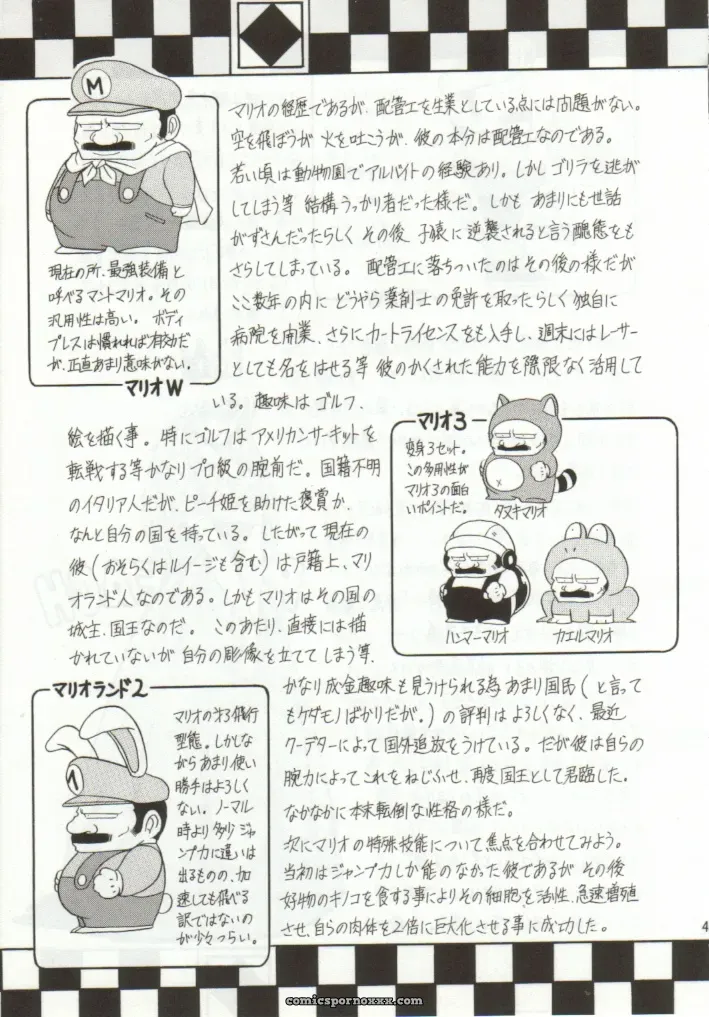 マリオの経歴であるが、配管工を生業としている点には問題がない。
空を飛ぼうが火を吐こうが、彼の本分は配管工なのである。
若い頃は動物園でアルバイトの経験あり。しかしゴリラを逃が
してしまう等 結構うっかり者だった様だ。しかも あまりにも世話
がずさんだったらしく その後 子猿に逆襲されると言う醜態をも
さらしてしまっている。 配管工に落ちついたのはその後の様だが
ここ数年の内に どうやら薬剤士の免許を取ったらしく 独自に
病院を開業、さらにカートライセンスをも入手し、週末にはレーサー
としても名をはせる等 彼のかくされた能力を際限なく活用して
いる。趣味はゴルフ、
絵を描く事。特にゴルフはアメリカンサーキットを
転戦する等かなりプロ級の腕前だ。国籍不明
のイタリア人だが、ピーチ姫を助けた褒賞か、
なんと自分の国を持っている。したがって現在の
彼(おそらくはルイージも含む)は戸籍上、マリ
オランド人なのである。しかもマリオはその国の
城主、国王なのだ。 このあたり、直接には描
かれていないが 自分の彫像を立ててしまう等、
かなり成金趣味も見うけられる為 あまり国民(と言って
もケダモノばかりだが。)の評判はよろしくなく、最近
クーデターによって国外追放をうけている。だが彼は自らの
腕力によってこれをねじふせ、再度国王として君臨した。
なかなかに本末転倒な性格の様だ。
次にマリオの特殊技能について焦点を合わせてみよう。
当初はジャンプ力しか能のなかった彼であるが その後
好物のキノコを食する事によりその細胞を活性、急速増殖
させ、自らの肉体を2倍に巨大化させる事に成功した。
M
現在の所、最強装備と
呼べるマントマリオ。その
汎用性は高い。 ボディ
プレスは慣れれば有効だ
が、正直あまり意味がない。
マリオW
マリオ3
変身3セット。
この多用性が
マリオ3の面白
いポイントだ。
タヌキマリオ
ハンマーマリオ
カエルマリオ
マリオランド2
マリオの飛行
型態。しかしな
がらあまり使い
勝手はよろしく
ない。ノーマル
時より多少ジャ
ンプ力に違いは
出るものの、加
速しても飛べる
訳ではないの
が少々つらい。
4
comicspornoxxx.com